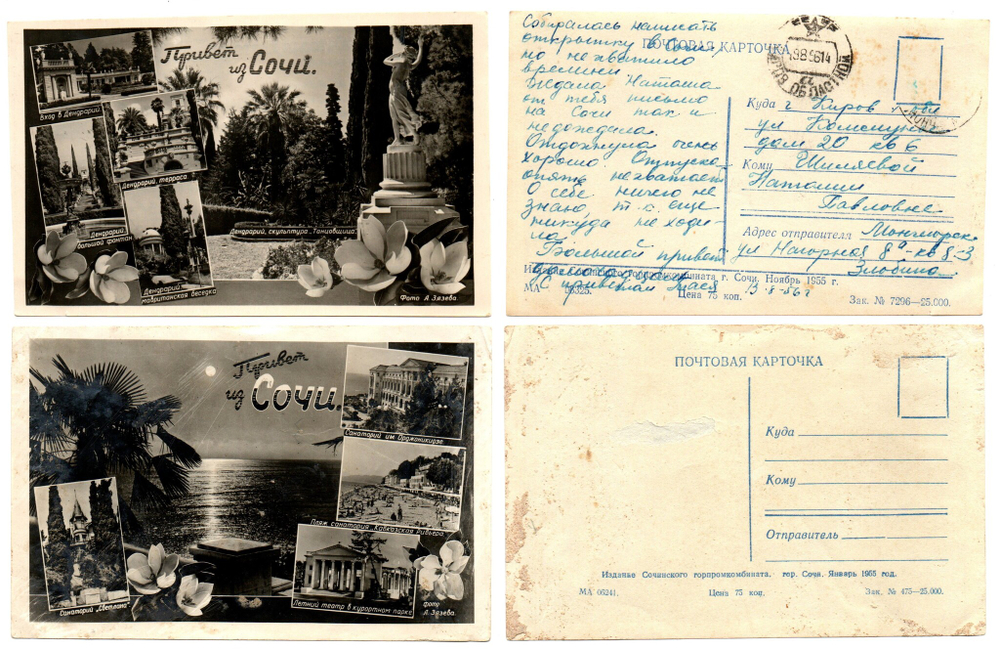 Привет
из Сочи.
Вход в Дендрарий
Дендрарий, терраса
Дендрарий
большой фонтан
Дендрарий, скульптура „Танцовщица“
Дендрарий
мавританская беседка
Фото А. Зязева.
Собиралась написать
открытку в Сочи,
но не хватило
времени
Ждала Наташа
от тебя письмо
на Сочи так и
недождала.
Отдохнула очень
хорошо. Отпуска
опять нехватает
О себе ничего не
знаю, т-к еще
никуда не ходи
ла.
Большой привет
С приветом Тася 13-8-56 г
ПОЧТОВАЯ КАРТОЧКА
Куда г. Киров
ул Коммуны
дом 20 кв 6
Кому Шиляевой
Наталии
Павловне
Адрес отправителя
ул Нагорная 8а кв 8-3
Злобина
Издание Сочинского горпромкомбината, г. Сочи, Ноябрь 1955 г.
МА Цена 75 коп. Зак. № 7296—25.000.
Привет
из Сочи.
Санаторий им. Орджоникидзе
Пляж санатория „Кавказская Ривьера“
Санаторий „Светлана“
Летний театр в курортном парке
фото
А. Зязева.
ПОЧТОВАЯ КАРТОЧКА
Куда
Кому
Отправитель
Издание Сочинского горпромкомбината. гор. Сочи. Январь 1955 год.
МА 06241. Цена 75 коп. Зак. № 475—25.000.